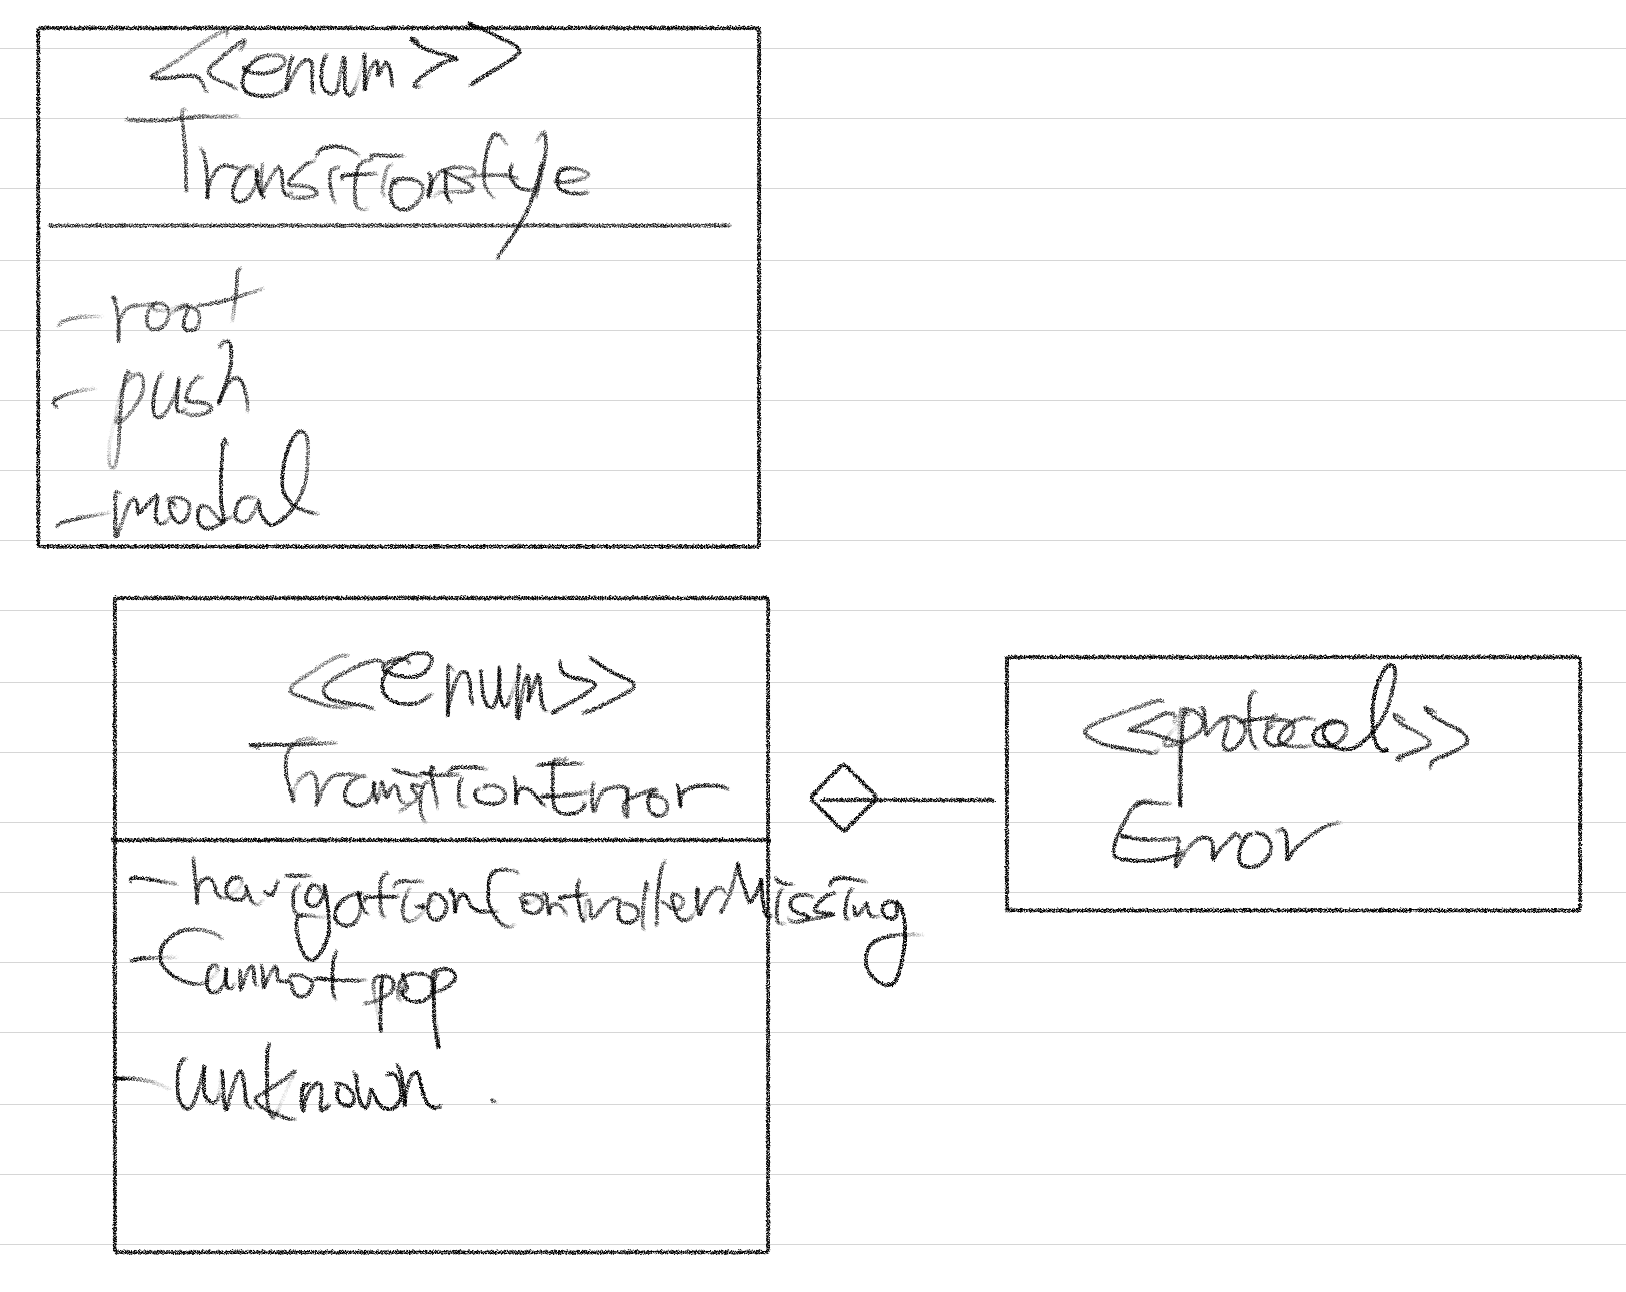 <<enum>>
Transitionstyle
- root
- push
- modal
<<enum>>
TransitionError
- navigationControllerMissing
- Cannot pop
- unknown .
<<protocol>>
Error